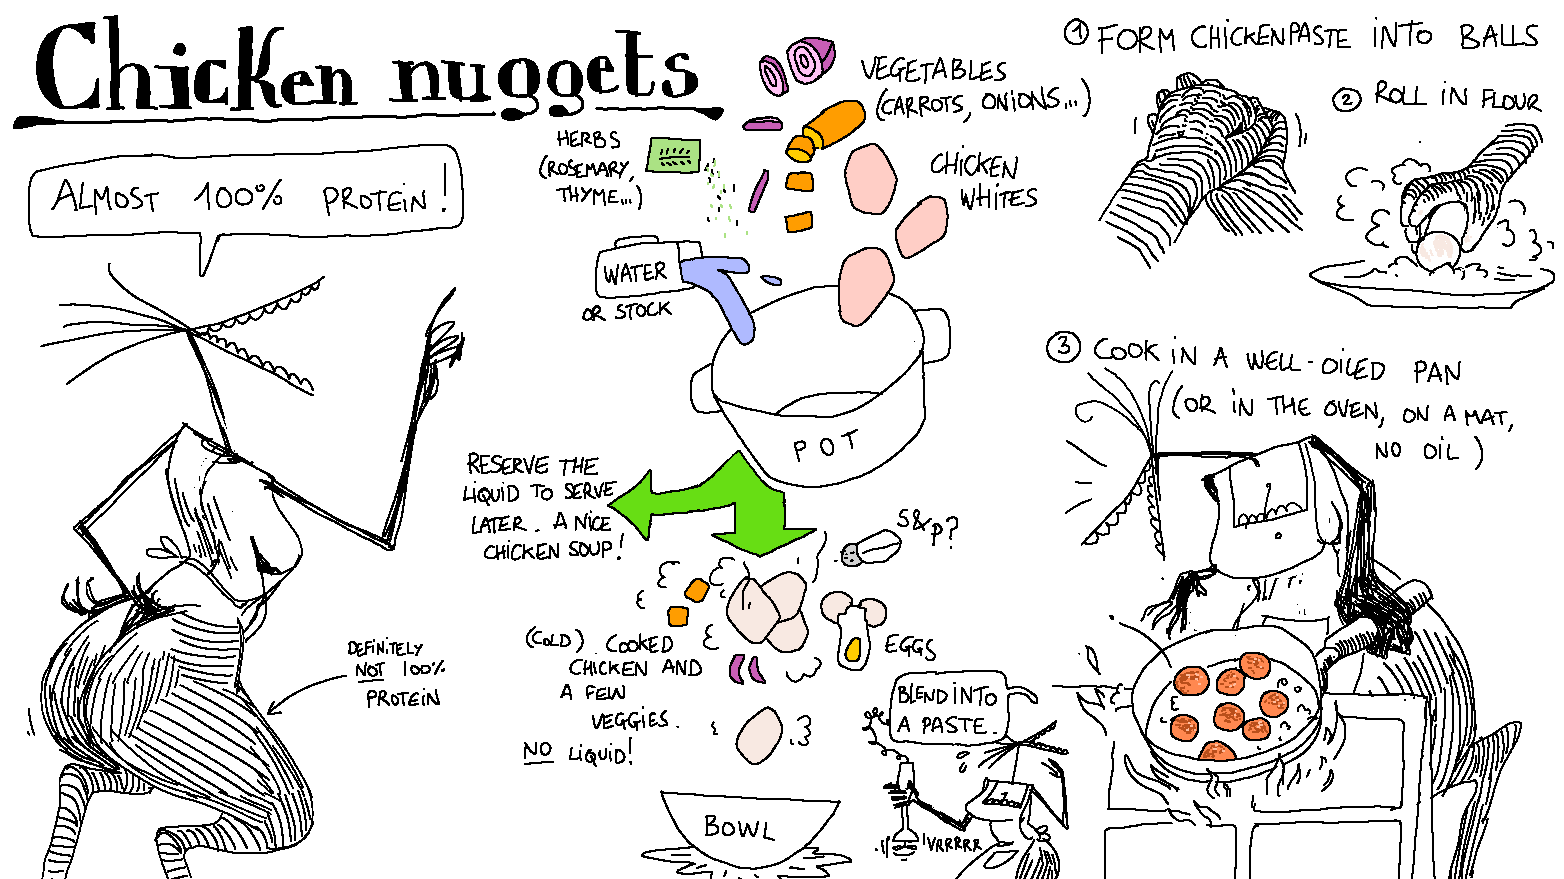 Chicken nuggets
ALMOST 100% PROTEIN!
DEFINITELY
NOT 100%
PROTEIN
VEGETABLES
(CARROTS, ONIONS...)
HERBS
(ROSEMARY,
THYME...)
CHICKEN
WHITES
WATER
OR STOCK
POT
RESERVE THE
LIQUID TO SERVE
LATER. A NICE
CHICKEN SOUP!
S&P?
EGGS
(COLD) COOKED
CHICKEN AND
A FEW
VEGGIES.
NO LIQUID!
BOWL
BLEND INTO
A PASTE.
VRRRRR
1 FORM CHICKENPASTE INTO BALLS
2 ROLL IN FLOUR
3 COOK IN A WELL-OILED PAN
(OR IN THE OVEN, ON A MAT,
NO OIL)